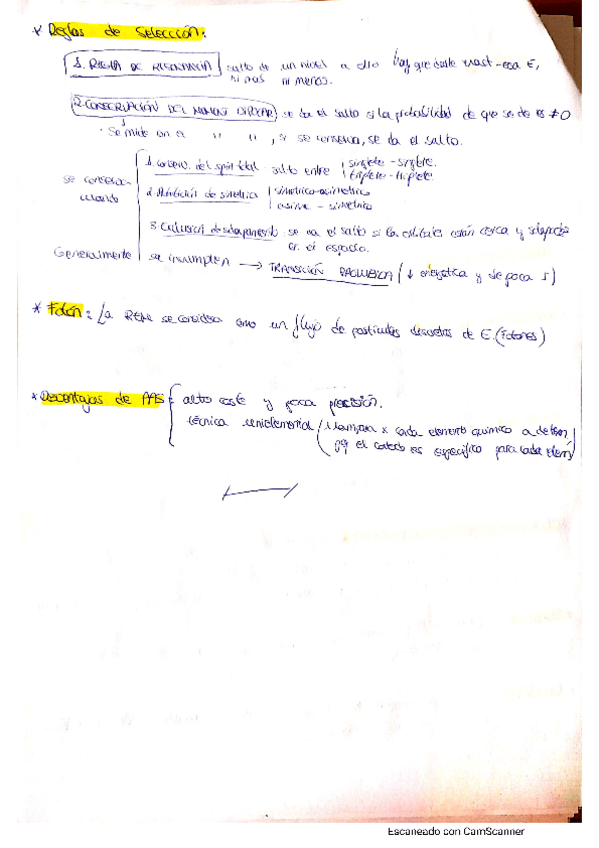 * Reglas de Selección:
1. REGLA DE RESONANCIA salto de un nivel a otro hay que darle exact. esa E,
ni más ni menos.
2. CONSERVACIÓN DEL MOMENT DIPOLAR se da el salto si la probabilidad de que se dé es ≠0
· Se mide en el " " , si se conserva, se da el salto.
se conserva cuando
1. conserv. del spin total salto entre singlete - singlete.
triplete - triplete
2. de simetría simétrico-asimétrico
asimé - simétrico
3. de solapamiento se da el salto si los orbitales están cerca y solapados
en el espacio.
Generalmente se incumplen → TRANSICIÓN (↓ energética y de poca I)
* Fotón: La REM se considera como un flujo de partículas discretas de E. (Fotones)
* Desventajas de AAS alto coste y poca precisión.
técnica unielemental (1 lámpara x cada elemento químico a determ
pq el cátodo es específico para cada elem)
Escaneado con CamScanner